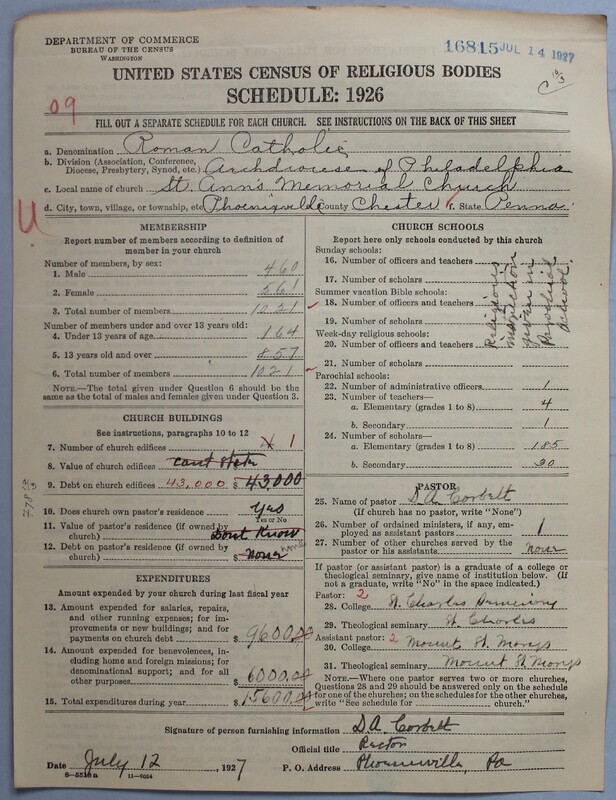 DEPARTMENT OF COMMERCE
BUREAU OF THE CENSUS
WASHINGTON
16815 JUL 14 1927
UNITED STATES CENSUS OF RELIGIOUS BODIES
SCHEDULE: 1926
09
FILL OUT A SEPARATE SCHEDULE FOR EACH CHURCH. SEE INSTRUCTIONS ON THE BACK OF THIS SHEET
a. Denomination Roman Catholic
b. Division (Association, Conference, Diocese, Presbytery, Synod, etc.) Archdiocese of Philadelphia
c. Local name of church St. Ann's Memorial Church
d. City, town, village, or township, etc. Phoenixville County Chester State Penna.
MEMBERSHIP
Report number of members according to definition of
member in your church
Number of members, by sex:
1. Male 460
2. Female 561
3. Total number of members 1021
Number of members under and over 13 years old:
4. Under 13 years of age 164
5. 13 years old and over 857
6. Total number of members 1021
NOTE.—The total given under Question 6 should be the
same as the total of males and females given under Question 3.
CHURCH BUILDINGS
See instructions, paragraphs 10 to 12
7. Number of church edifices 1
8. Value of church edifices cant state
9. Debt on church edifices 43,000 $ 43,000
10. Does church own pastor's residence Yes
Yes or No
11. Value of pastor's residence (if owned by
church) Dont Know
12. Debt on pastor's residence (if owned by
church) $ None none
EXPENDITURES
Amount expended by your church during last fiscal year
13. Amount expended for salaries, repairs,
and other running expenses; for im-
provements or new buildings; and for
payments on church debt $ 9600.00
14. Amount expended for benevolences,
including home and foreign missions; for
denominational support; and for all
other purposes $ 6000.00
15. Total expenditures during year $ 15600.00
CHURCH SCHOOLS
Report here only schools conducted by this church
Sunday schools:
16. Number of officers and teachers
17. Number of scholars
Summer vacation Bible schools:
18. Number of officers and teachers
19. Number of scholars
Week-day religious schools:
20. Number of officers and teachers
21. Number of scholars
Religious
instruction
given in
Parochial
School.
Parochial schools:
22. Number of administrative officers 1
23. Number of teachers—
a. Elementary (grades 1 to 8) 4
b. Secondary 1
24. Number of scholars—
a. Elementary (grades 1 to 8) 185
b. Secondary 30
PASTOR
25. Name of pastor D. A. Corbett
(If church has no pastor, write "None")
26. Number of ordained ministers, if any, em-
ployed as assistant pastors 1
27. Number of other churches served by the
pastor or his assistants None
If pastor (or assistant pastor) is a graduate of a college or
theological seminary, give name of institution below. (If
not a graduate, write "No" in the space indicated.)
Pastor: 2
28. College St. Charles Seminary
29. Theological seminary St. Charles
Assistant pastor: 2
30. College Mount St. Marys
31. Theological seminary Mount St. Marys
NOTE.—Where one pastor serves two or more churches,
Questions 28 and 29 should be answered only on the schedule
for one of the churches; on the schedules for the other churches,
write "See schedule for church."
Signature of person furnishing information D. A. Corbett
Official title Rector
Date July 12, 1927 P. O. Address Phoenixville, Pa
11—9054